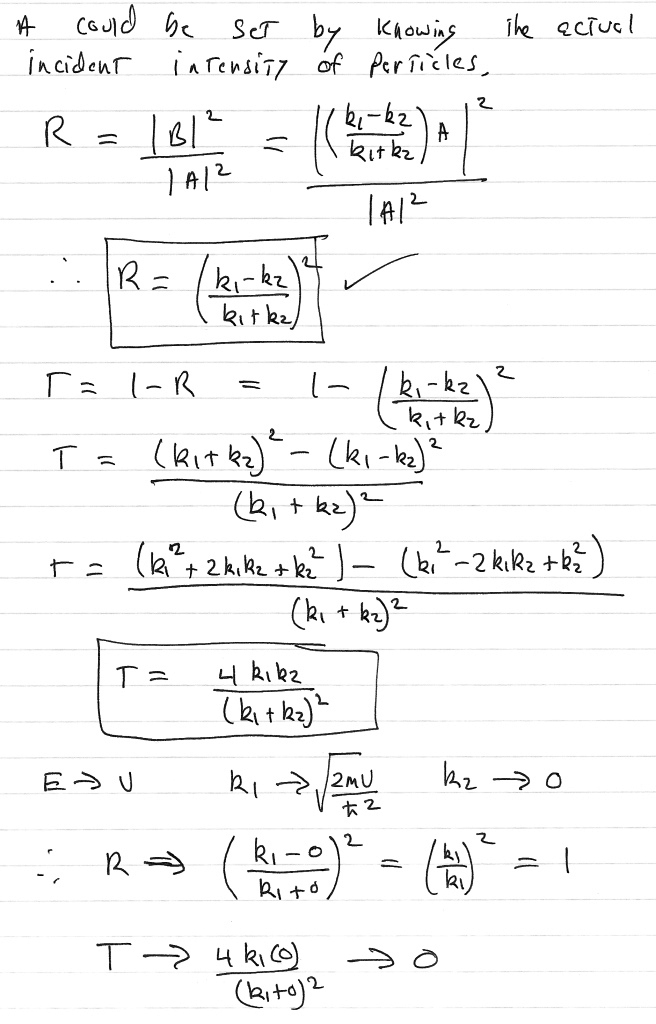 A could be set by knowing the actual
incident intensity of particles.
R = |B|² / |A|² = |((k₁-k₂)/(k₁+k₂)) A|² / |A|²
∴ R = ((k₁-k₂)/(k₁+k₂))² ✓
T = 1-R = 1- ((k₁-k₂)/(k₁+k₂))²
T = ((k₁+k₂)² - (k₁-k₂)²) / (k₁+k₂)²
T = ((k₁²+2k₁k₂+k₂²) - (k₁²-2k₁k₂+k₂²)) / (k₁+k₂)²
T = 4k₁k₂ / (k₁+k₂)²
E → U k₁ → √(2mU/ħ²) k₂ → 0
∴ R ⇒ ((k₁-0)/(k₁+0))² = (k₁/k₁)² = 1
T → 4k₁(0) / (k₁+0)² → 0